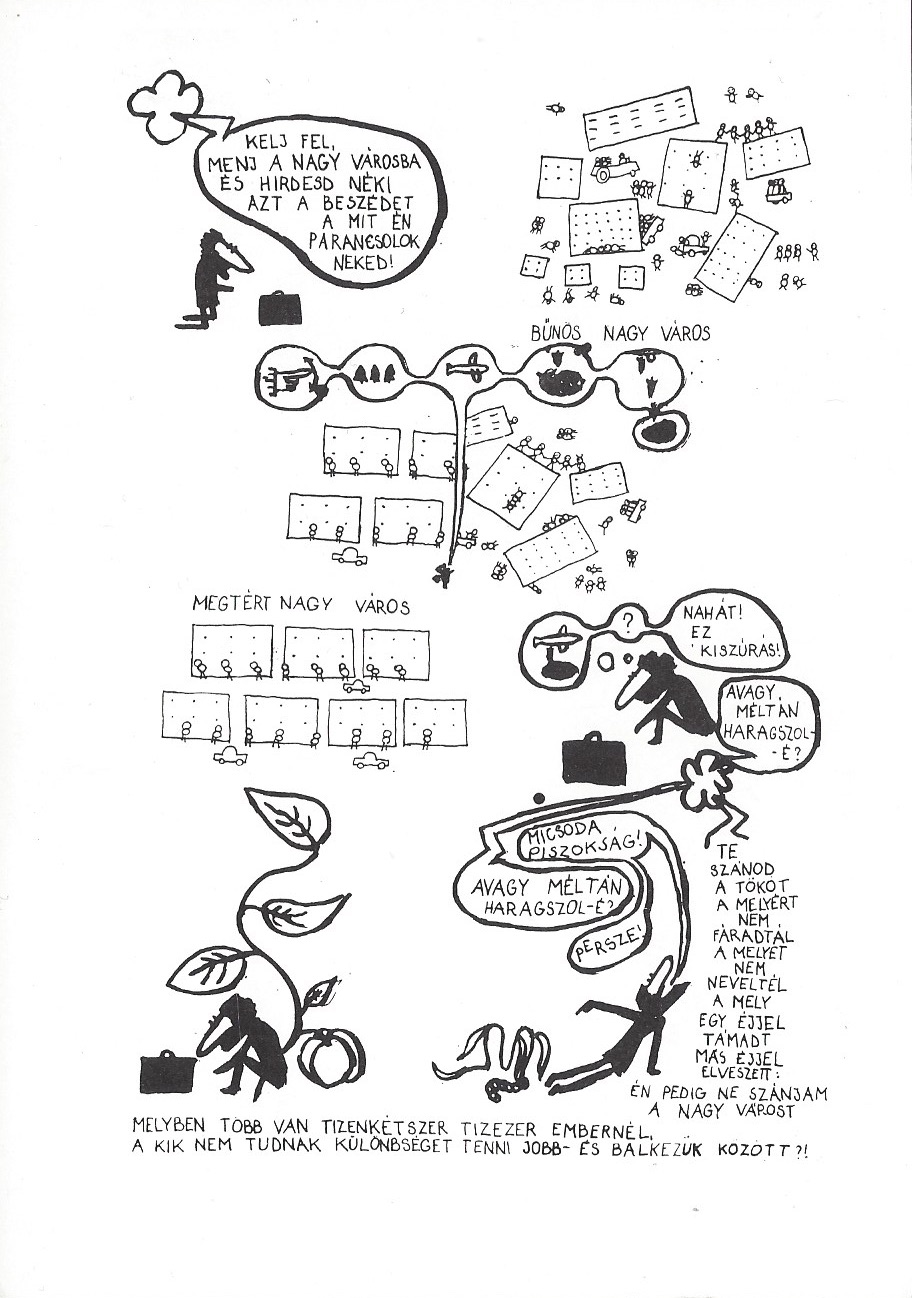 KELJ FEL,
MENJ A NAGY VÁROSBA
ÉS HIRDESD NÉKI
AZT A BESZÉDET
A MIT ÉN
PARANCSOLOK
NEKED!
BŰNÖS NAGY VÁROS
MEGTÉRT NAGY VÁROS
?
NAHÁT!
EZ
KISZÚRÁS!
AVAGY,
MÉLTÁN
HARAGSZOL-
-É?
MICSODA
PISZOKSÁG!
AVAGY MÉLTÁN
HARAGSZOL-É?
PERSZE!
TE
SZÁNOD
A TÖKÖT
A MELYÉRT
NEM
FÁRADTÁL
A MELYET
NEM
NEVELTÉL
A MELY
EGY ÉJJEL
TÁMADT
MÁS ÉJJEL
ELVESZETT:
ÉN PEDIG NE SZÁNJAM
A NAGY VÁROST
MELYBEN TÖBB VAN TIZENKÉTSZER TIZEZER EMBERNÉL,
A KIK NEM TUDNAK KÜLÖNBSÉGET TENNI JOBB- ÉS BALKEZÜK KÖZÖTT?!